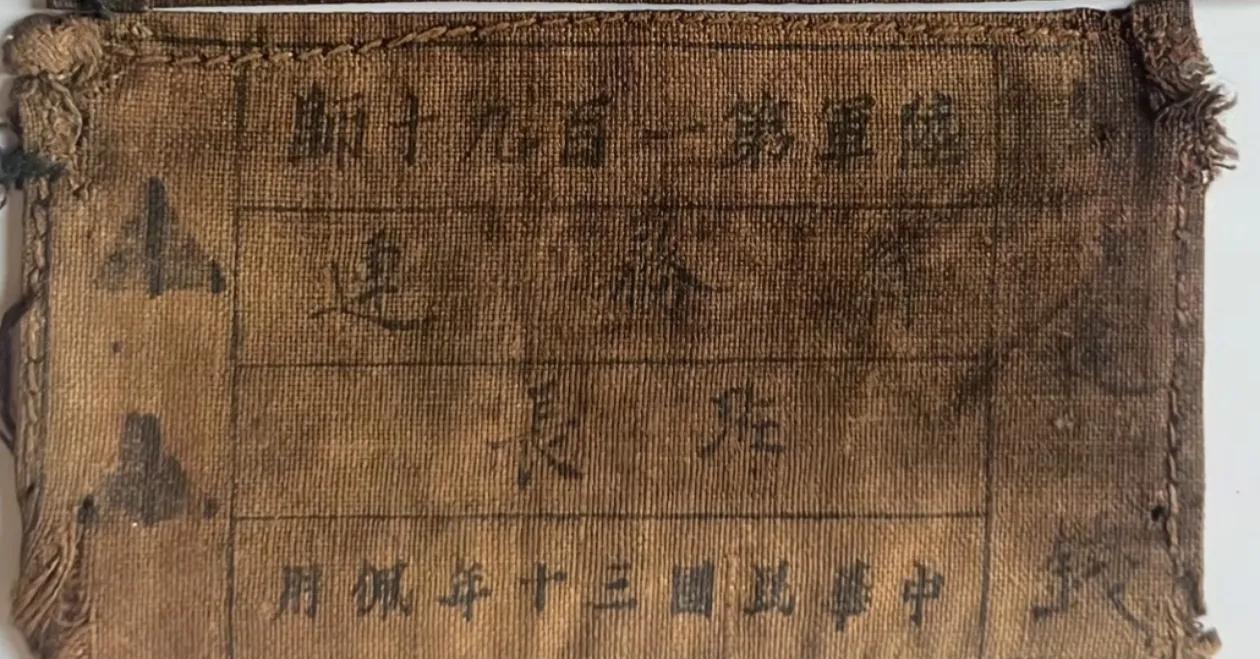 陸軍第一百九十師
特務連
班長
中華民國三十年佩用
號